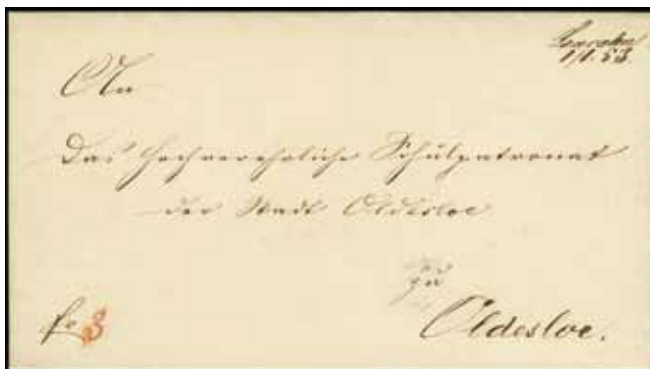 1/1. 53.
An
Das hochverehrliche Schulpatronat
der Stadt Oldesloe
zu
fr 3
Oldesloe.